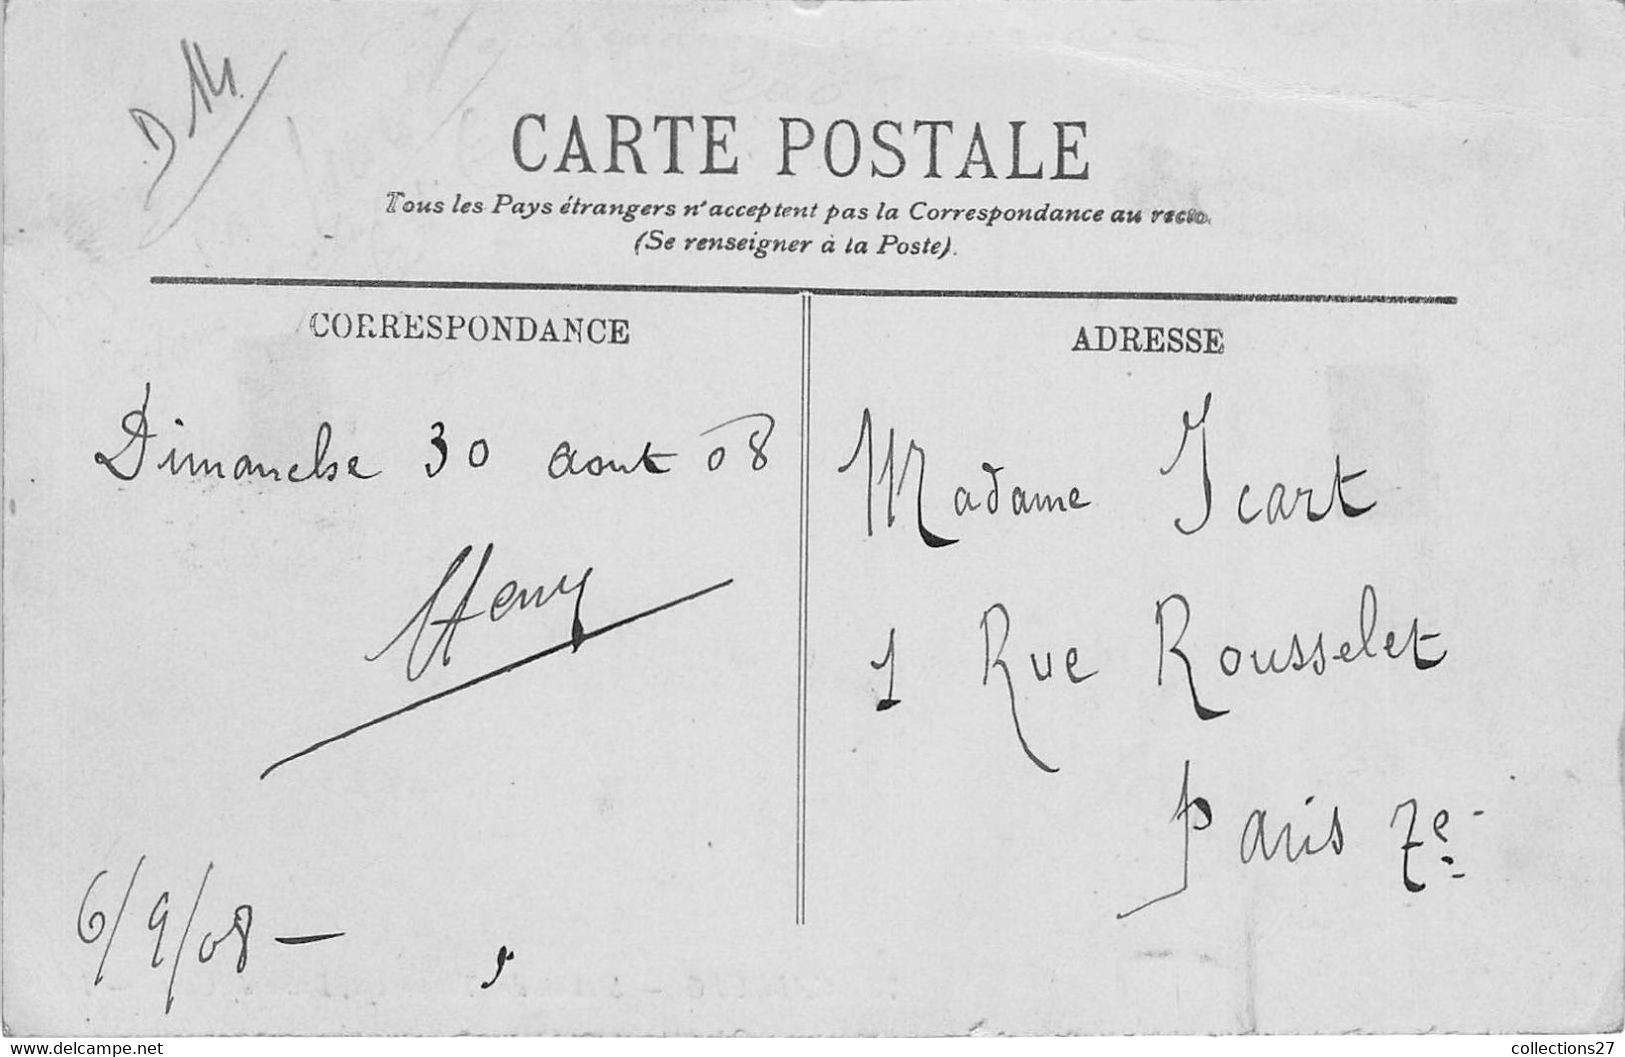 D 14
CARTE POSTALE
Tous les Pays étrangers n'acceptent pas la Correspondance au recto.
(Se renseigner à la Poste).
CORRESPONDANCE
Dimanche 30 aout 08
Henry
6/9/08 —
ADRESSE
Madame Icart
1 Rue Rousselet
Paris 7e
www.delcampe.net
collections27